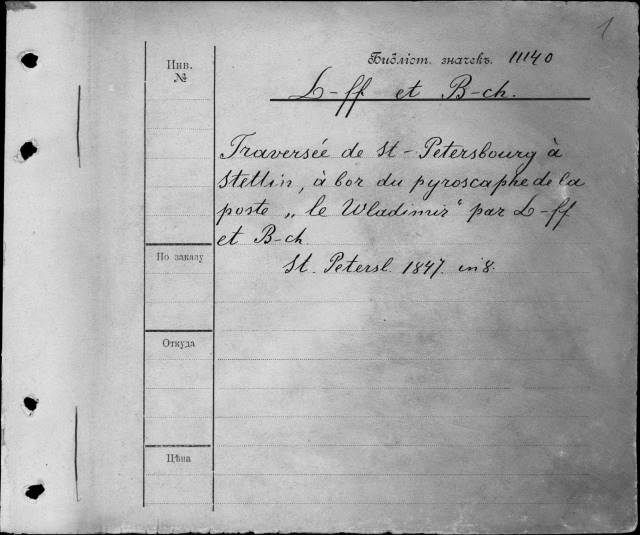 1
Библіот. значекъ. 11140
Инв.
№
L-ff et B-ch.
Traversée de St-Petersbourg à
Stettin, à bor du pyroscaphe de la
poste „le Wladimir“ par L-ff
et B-ch.
St. Petersb. 1847. in 8.
По заказу
Откуда
Цѣна